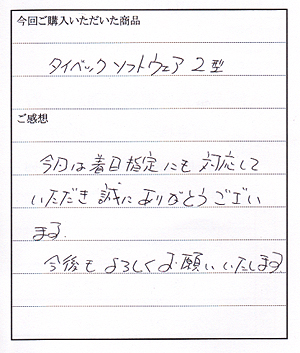 今回ご購入いただいた商品
タイベックソフトウェア2型
ご感想
今回は着日指定にも対応して
いただき誠にありがとうござい
ます.
今後もよろしくお願いいたします